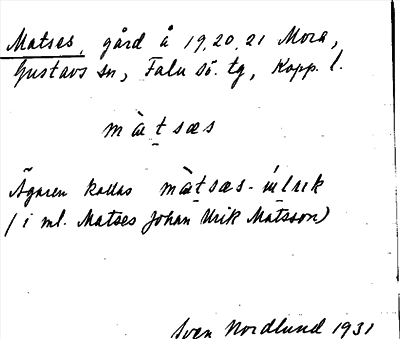 Matses, gård å 19, 20, 21 Mora,
Gustavs sn, Falu sö. tg, Kopp. l.
màtsæs
Ägaren kallas màtsæs-úlrik
(i ml. Matses Johan Ulrik Matsson)
Sven Nordlund 1931